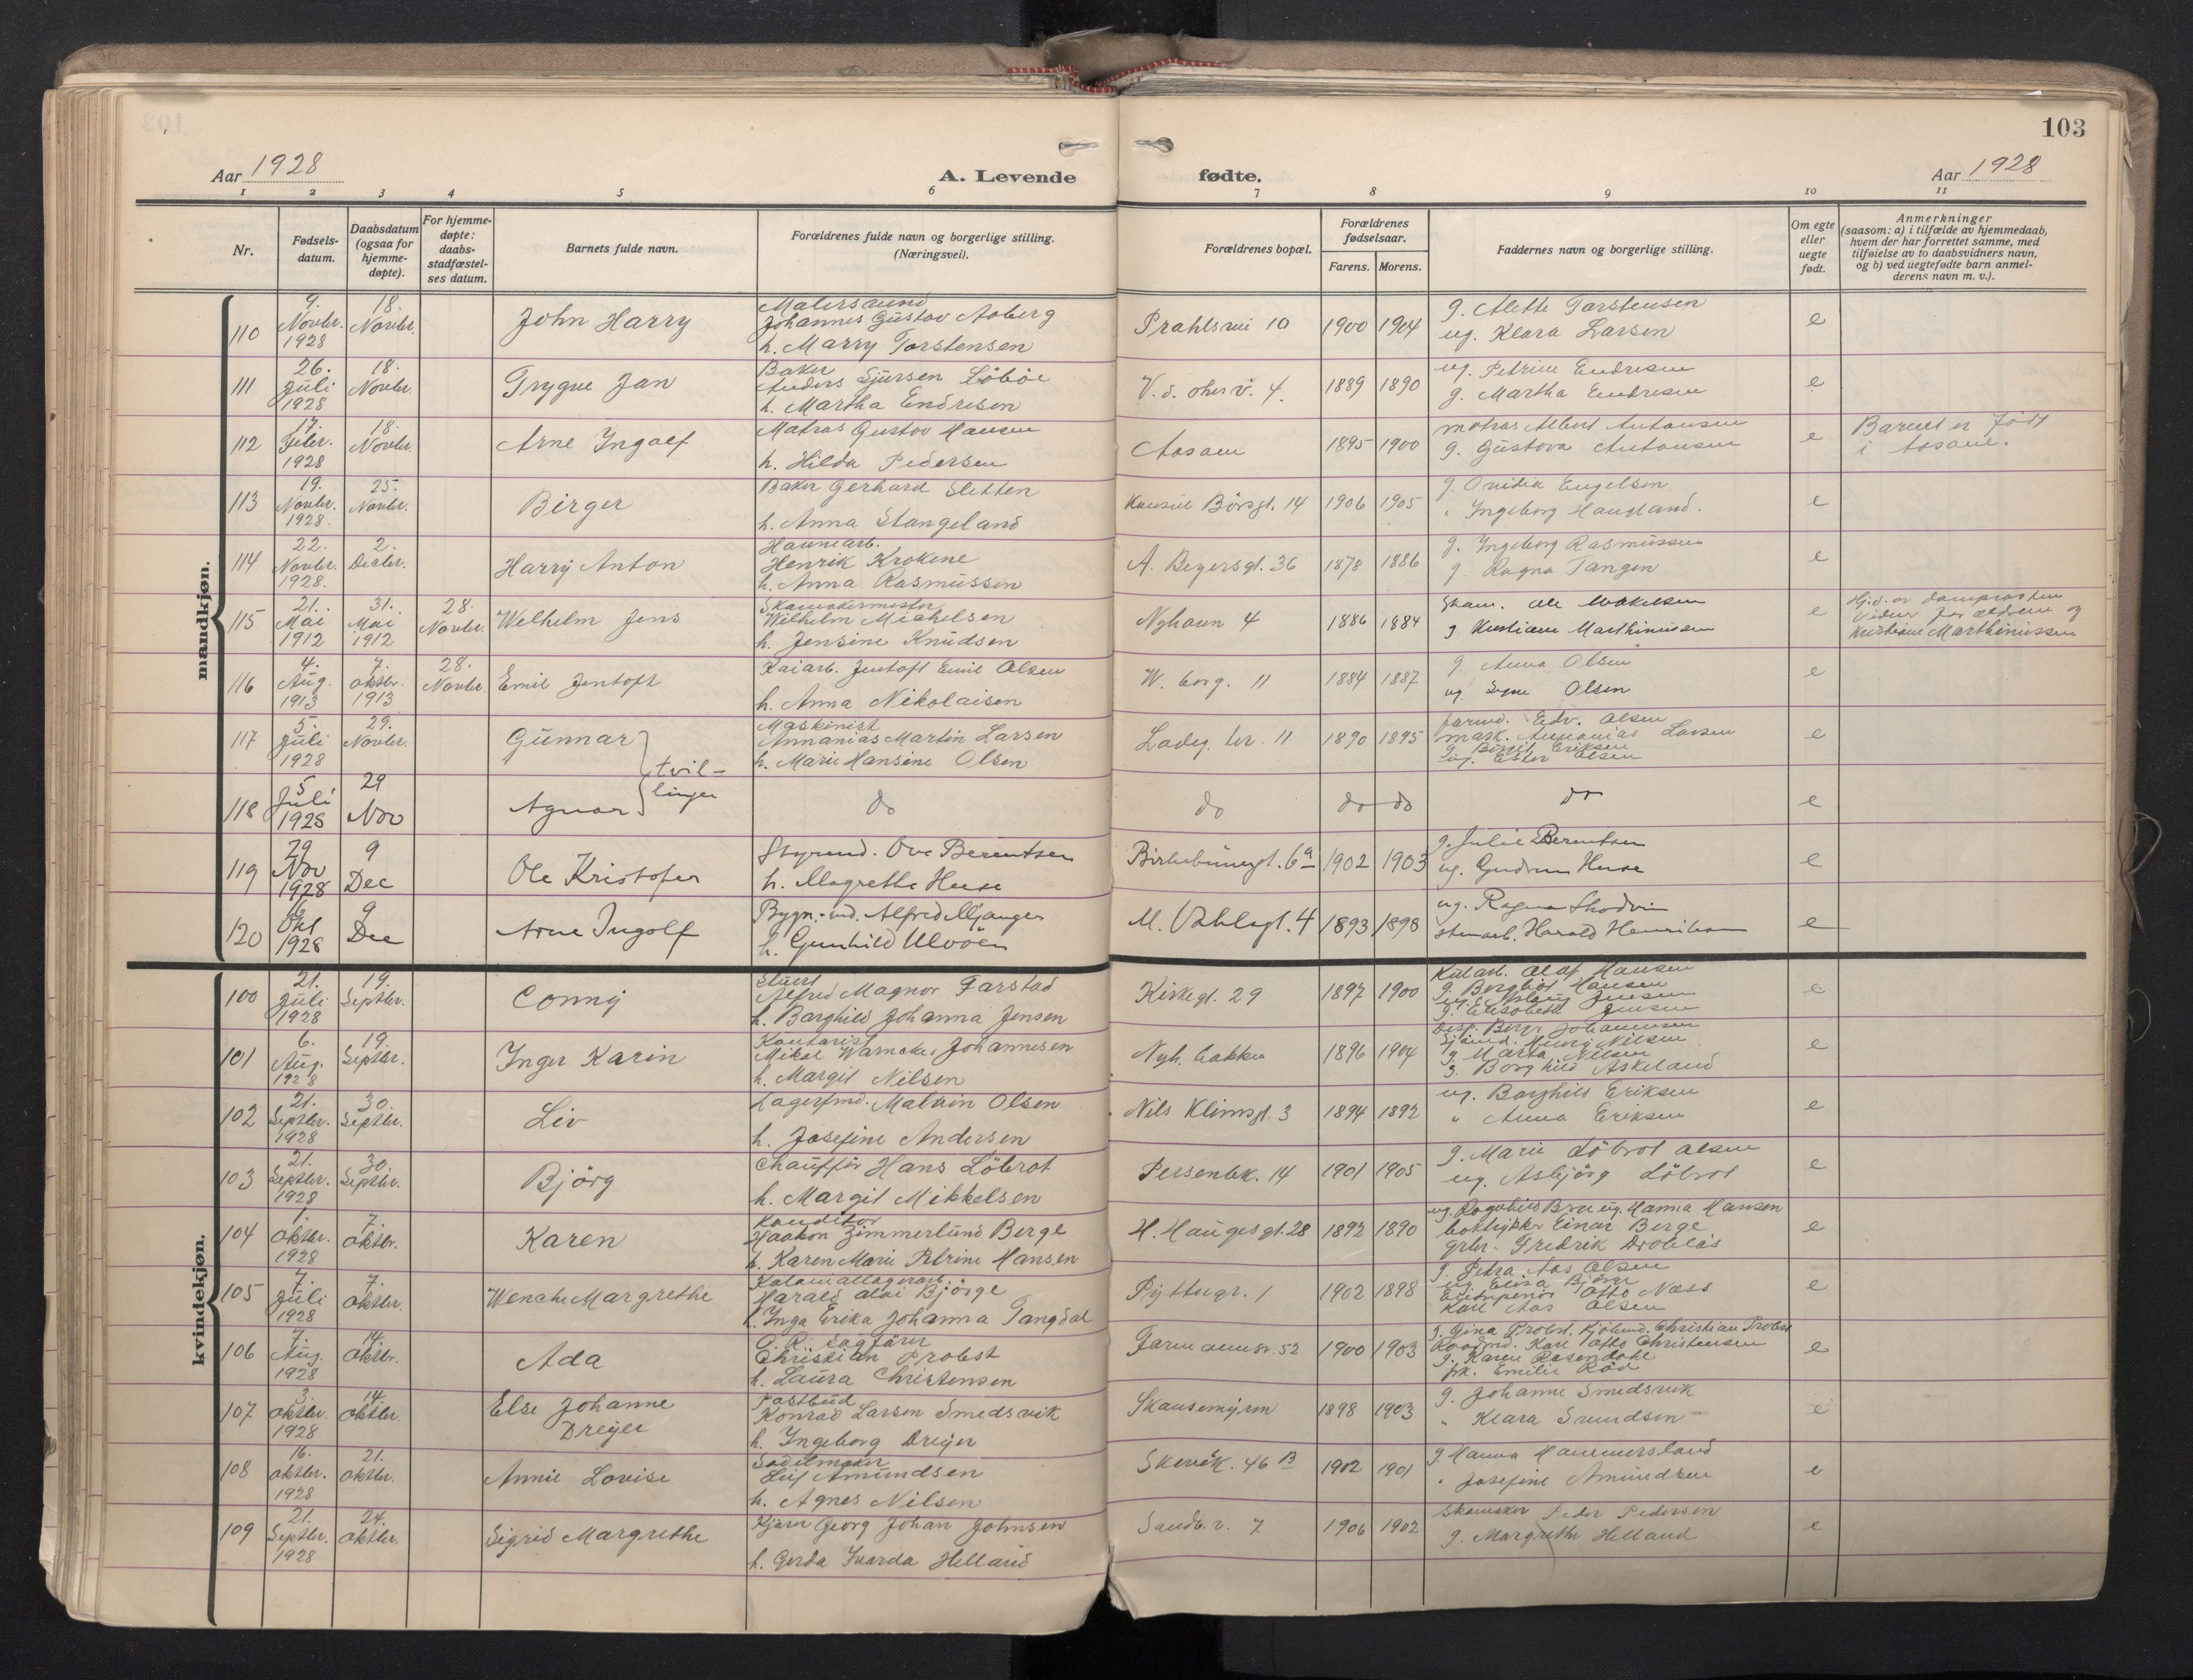 103
Aar 1928
A. Levende
fødte.
Aar 1928
1 2 3 4 5 6 7 8 9 10 11
Nr.
Fødsels-
datum.
Daabsdatum
(ogsaa for
hjemme-
døpte).
For hjemme-
døpte:
daabs-
stadfæstel-
ses datum.
Barnets fulde navn.
Forældrenes fulde navn og borgerlige stilling.
(Næringsvei).
Forældrenes bopæl.
Forældrenes
fødselsaar.
Farens. Morens.
Faddernes navn og borgerlige stilling.
Om egte
eller
uegte
født.
Anmerkninger
(saasom: a) i tilfælde av hjemmedaab,
hvem der har forrettet samme, med
tilføielse av to daabsvidners navn,
og b) ved uegtefødte barn anmel-
derens navn m. v.).
mandkjøn.
110
9. Novbr. 1928
18. Novbr.
John Harry
Malersvend
Johannes Gustav Aaberg
h. Marry Torstensen
Prahlsvei 10
1900 1904
g. Alette Torstensen
ug. Klara Larsen
e
111
26. Juli 1928
18. Novbr.
Trygve Jan
Baker
Anders Sjursen Löböe
h. Martha Endresen
1889 1890
ug. Petrine Endresen
g. Martha Endresen
e
112
17. Febr. 1928
18. Novbr.
Arne Ingolf
Matros Gustav Hansen
h. Hilda Pedersen
Aasane
1895 1900
matros Albert Antonsen
g. Gustava Antonsen
e
Barnet er født
i Aasane.
113
19. Novbr. 1928.
25. Novbr.
Birger
Baker Gerhard Sletten
h. Anna Stangeland
Konsul Börsgt. 14
1906 1905
g. Ovidia Engelsen
" Ingeborg Haugland.
e
114
22. Novbr. 1928.
2. Decbr.
Harry Anton
Havnearb.
Henrik Krokene
h. Anna Rasmussen
A. Beyersgt. 36
1878 1886
g. Ingeborg Rasmussen
g. Ragna Tangen
e
115
21. Mai 1912
31. Mai 1912
28. Novbr.
Welhelm Jens
Skomakermester
Wilhelm Michelsen
h. Jensine Knudsen
Nyhavn 4
1886 1884
g. Kristiane Marthinussen
e
Hj.d. av domprosten
Vidner foreldrene og
Kristiane Marthinussen
116
4. Aug. 1913
7. Oktbr. 1913
28. Novbr.
Emil Jentoft
Kaiarb. Jentoft Emil Olsen
h. Anna Nikolaisen
W. borg. 11
1884 1887
g. Anna Olsen
ug. Signe Olsen
e
117
5. Juli 1928
29. Novbr.
Gunnar
Maskinist
Annanias Martin Larsen
h. Marie Hansine Olsen
Ladeg. br. 11
1890 1895
formd. Edv. Olsen
mask. Annanias Larsen
g. Birgit Eriksen
ug. Ester Olsen
e
tvil-
linger
118
5 Juli 1928
29 Nov
Agnar
do
do
do do
do
e
119
29 Nov 1928
9 Dec
Ole Kristofer
Styrmd. Ove Berentsen
h. Magrethe Huse
Birkebeinergt. 6a
1902 1903
g. Julie Berentsen
ug. Gudrun Huse
e
120
6 Okt 1928
9 Dec
Arne Ingolf
Bygn.-snd. Alfred Mjanger
h. Gunhild Ulvöen
M. Vahlsgt. 4
1893 1898
ug. Ragna Skodvin
stenarb. Harald Henriksen
e
kvindekjøn.
100
21. Juli 1928
19. Septbr.
Conny
Stuert
Alfred Magnor Farstad
h. Borghild Johanna Jensen
Kirkegt. 29
1897 1900
Kularb. Olaf Hansen
g. Borghild Hansen
ug. Aslaug Jensen
g. Elisabeth Jensen
e
101
6. Aug. 1928
19. Septbr.
Inger Karin
Kontorist
Mikal Warncke Johannesen
h. Margit Nilsen
Nyh. bakken
1896 1904
Disp. Birger Johannesen
Sjömd. Henry Nilsen
g. Marta Nilsen
g. Borghild Askeland
e
102
21. Septbr. 1928
30. Septbr.
Liv
Lagerfmd. Malvin Olsen
h. Josefine Andersen
Nils Klimsgt. 3
1894 1892
ug. Borghild Eriksen
" Anna Eriksen
e
103
21. Septbr. 1928
30. Septbr.
Björg
Chauffør Hans Löbrot
h. Margit Mikkelsen
Persenbk. 14
1901 1905
g. Marie Löbrot Olsen
ug. Asbjörg Löbrot
e
104
1. Oktbr. 1928
7. Oktbr.
Karen
Konditor
Haakon Zimmerlund Berge
h. Karen Marie Petrine Hansen
H. Haugesgt. 28
1892 1890
ug. Ragnhild Bru ug. Hanna Hansen
boktrykker Einar Berge
e
105
7. Juli 1928
7. Oktbr.
Wenche Margrethe
Koloniallagerarb.
Harald Olai Bjørge
h. Inga Erika Johanna Tangdal
Pyttergr. 1
1902 1898
g. Petra Aas Olsen
Otto Næss
Karl Aas Olsen
e
106
7. Aug. 1928
14. Oktbr.
Ada
O. R. sagfører
Christian Probst
h. Laura Christensen
Formannsv. 52
1900 1903
g. Gina Probst, Kjöbmd. Christian Probst
Karl Otto Christensen
g. Karen Rosendahl
frk. Emilie Röd
e
107
3. Oktbr. 1928
14. Oktbr.
Else Johanne
Dreyer
Postbud
Konrad Larsen Smedsvik
h. Ingeborg Dreyer
Skansemyren
1898 1903
g. Johanne Smedsvik
" Klara Smundsen
e
108
16. Oktbr. 1928
21. Oktbr.
Annie Lovise
Sadelmaker
Leif Amundsen
h. Agnes Nilsen
Skivebk. 46 B
1902 1901
g. Hanna Hammersland
" Josefine Amundsen
e
109
21. Septbr. 1928
24. Oktbr.
Sigrid Margrethe
Kjører Georg Johan Johnsen
h. Gerda Ivarda Helland
Sandb. v. 7
1906 1902
Skomaker Peder Pedersen
g. Margrethe Helland
e